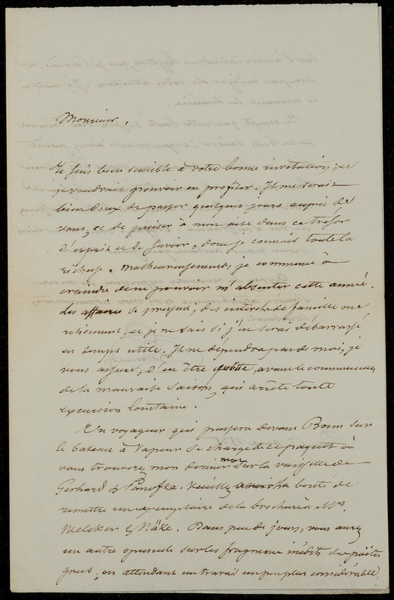 Monsieur,
Je suis bien sensible à votre bonne invitation; et
je voudrais pouvoir en profiter. Il me serait
bien doux de passer quelques jours auprès de
vous, et de puiser à mon aise dans ce trésor
d'esprit et de savoir, dont je connais toute la
richesse. Malheureusement, je commence à
craindre de ne pouvoir m'absenter cette année.
Les affaires se , des intérêts de famille me
retiennent, et je ne sais si j'en serai débarrassé
en temps utile. Il ne dépendra pas de moi, je
vous assure, d'en être quitte, avant le commencement
de la mauvaise saison, qui arrête toute
excursion lointaine.
Un voyageur qui passera devant Bonn sur
le bateau à vapeur se charge de ce paquet où
vous trouverez mon dernier mot sur la vaisselle de
Gerhard & Panofka. Veuillez avoir la bonté de
remettre un exemplaire de la brochure à Mrs.
Welcker & Näke. Dans peu de jours, vous aurez
un autre opuscule sur les fragmens inédits de poètes
grecs, en attendant un travail un peu plus considérable